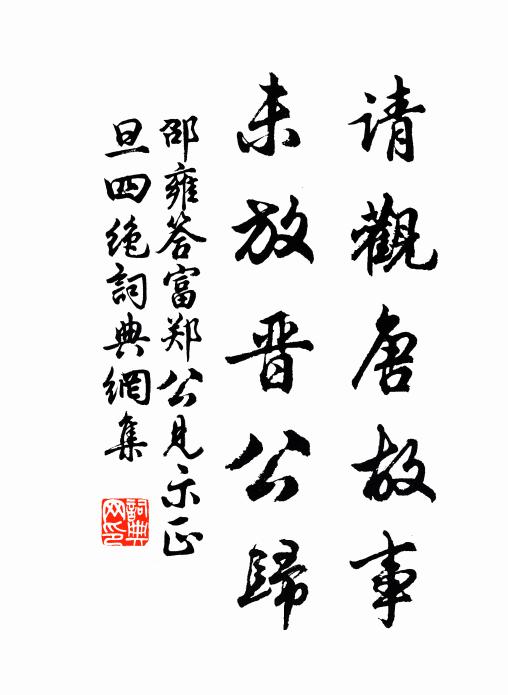 请觀唐故事
未放晋公歸
邵雍答富郑公見示正
旦四绝詞典網集
詞典网印